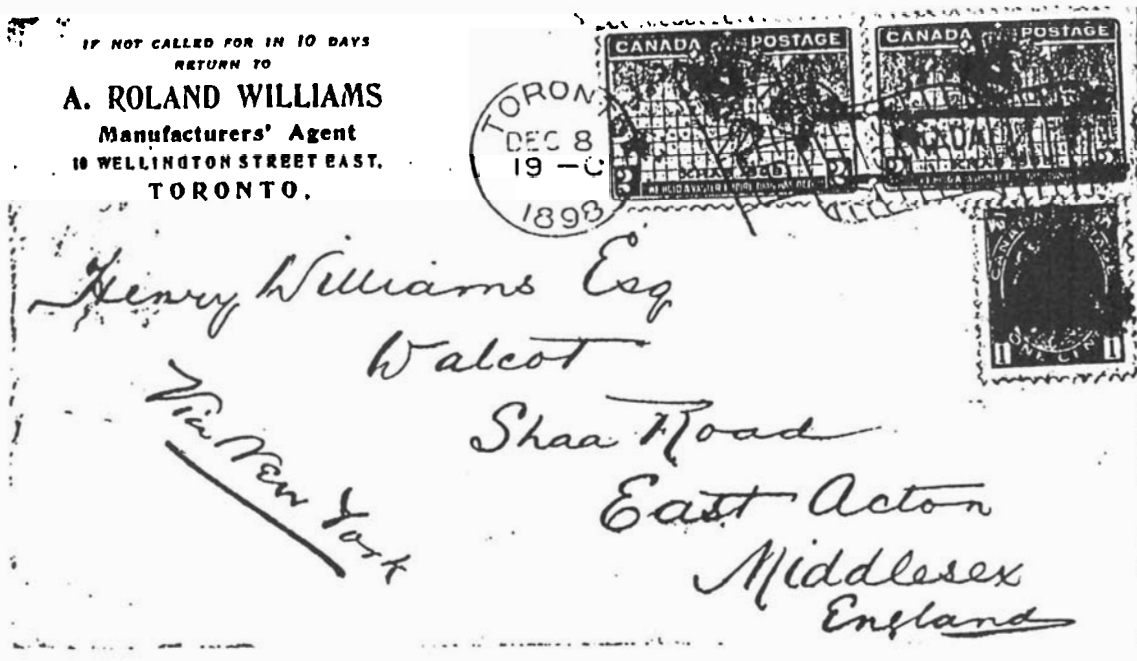 IF NOT CALLED FOR IN 10 DAYS
RETURN TO
A. ROLAND WILLIAMS
Manufacturers' Agent
WELLINGTON STREET EAST,
TORONTO.
TORON
DEC 8
19 -
1898
CANADA POSTAGE
XMAS 1898
2 2
CANADA POSTAGE
XMAS 1898
2 2
CANADA POSTAGE
ONE CENT
1 1
Henry Williams Esq
Walcot
Shaa Road
East Acton
Middlesex
England
Via New York